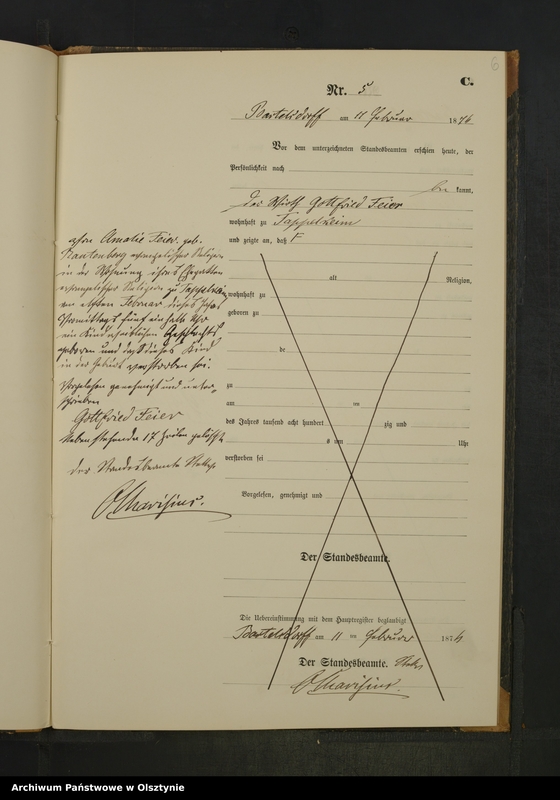 6
C.
Nr. 5
Bartelsdorff am 11 Februar 1876
Vor dem unterzeichneten Standesbeamten erschien heute, der
Persönlichkeit nach
kannt,
der Wirth Gottfried Feier
wohnhaft zu
und zeigte an, daß
alt Religion,
wohnhaft zu
geboren zu
de
zu
am ten
des Jahres tausend acht hundert zig und
s um Uhr
verstorben sei
Vorgelesen, genehmigt und
Der Standesbeamte.
Die Uebereinstimmung mit dem Hauptregister beglaubigt
Bartelsdorff am 11 ten Februar 1876
Der Standesbeamte.
Amalie Feier geb.
evangelischer Religion
in der Wohnung ihres
evangelischer Religion zu
am elften Februar dieses Jahres
Vormittags fünf einhalb Uhr
ein Kind Geschlechts
geboren und daß dieses Kind
in der Geburt verstorben sei.
Vorgelesen genehmigt und unter-
schrieben
Gottfried Feier
Nebenstehende 17 Zeilen gelöscht
Der Standesbeamte
Archiwum Państwowe w Olsztynie